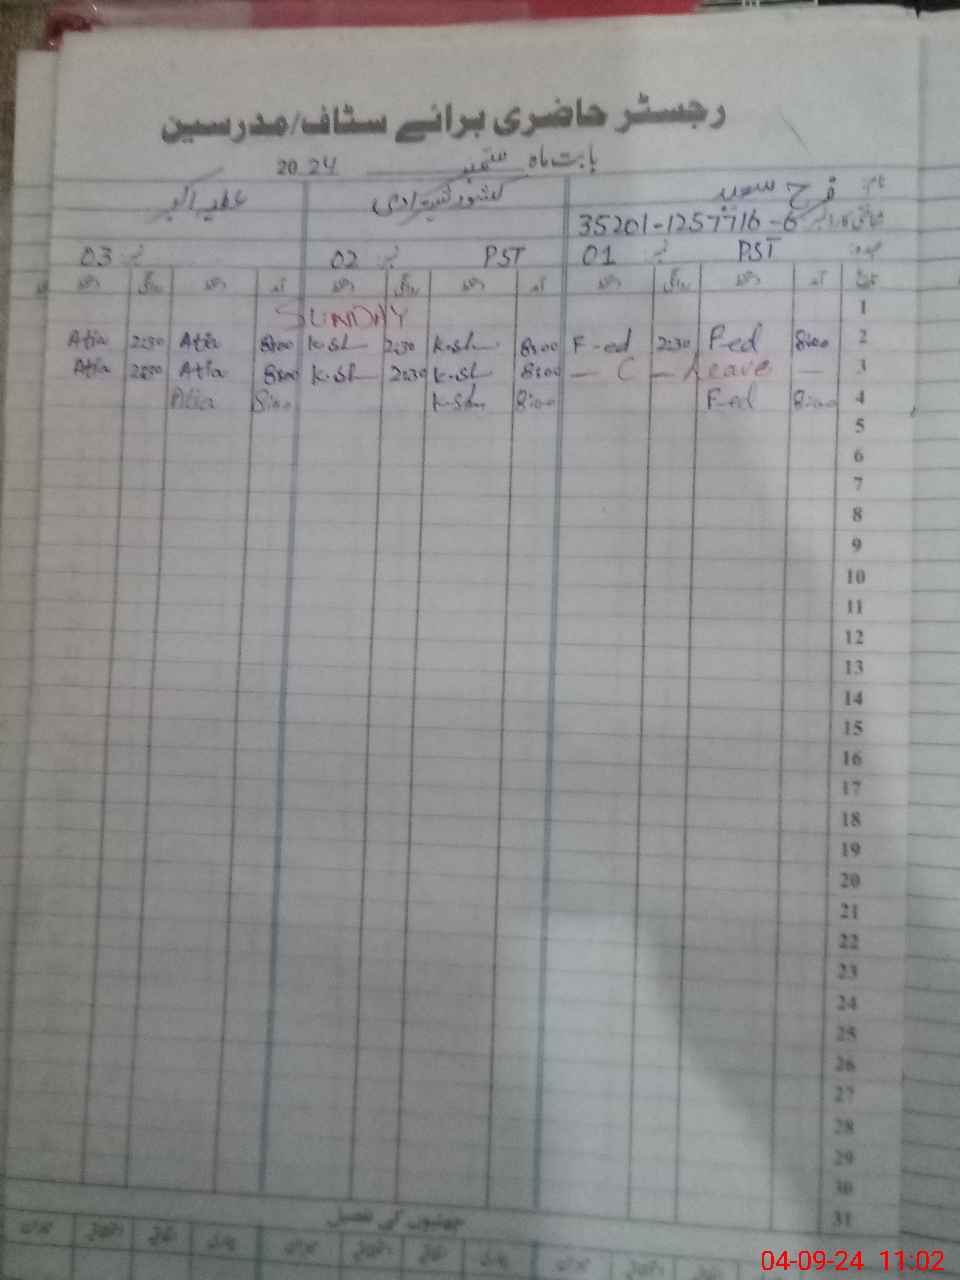 رجسٹر حاضری برائے سٹاف/مدرسین
بابت ماہ ستمبر 2024
نام: فرح سعید
35201-1257716-6
عہدہ: PST نمبر 01 PST نمبر 02 نمبر 03
تاریخ آمد دستخط روانگی دستخط آمد دستخط روانگی دستخط آمد دستخط روانگی دستخط
1 SUNDAY
2 8:00 F-ed 2:30 F-ed 8:00 K.Sh 2:30 K.Sh 8:00 Atia 2:30 Atia
3 — Leave — C — 8:00 K.Sh 2:30 K.Sh 8:00 Atia 2:30 Atia
4 8:00 F-ed 8:00 K.Sh 8:00 Atia
5
6
7
8
9
10
11
12
13
14
15
16
17
18
19
20
21
22
23
24
25
26
27
28
29
30
31
چھٹیوں کی تفصیل
04-09-24 11:02